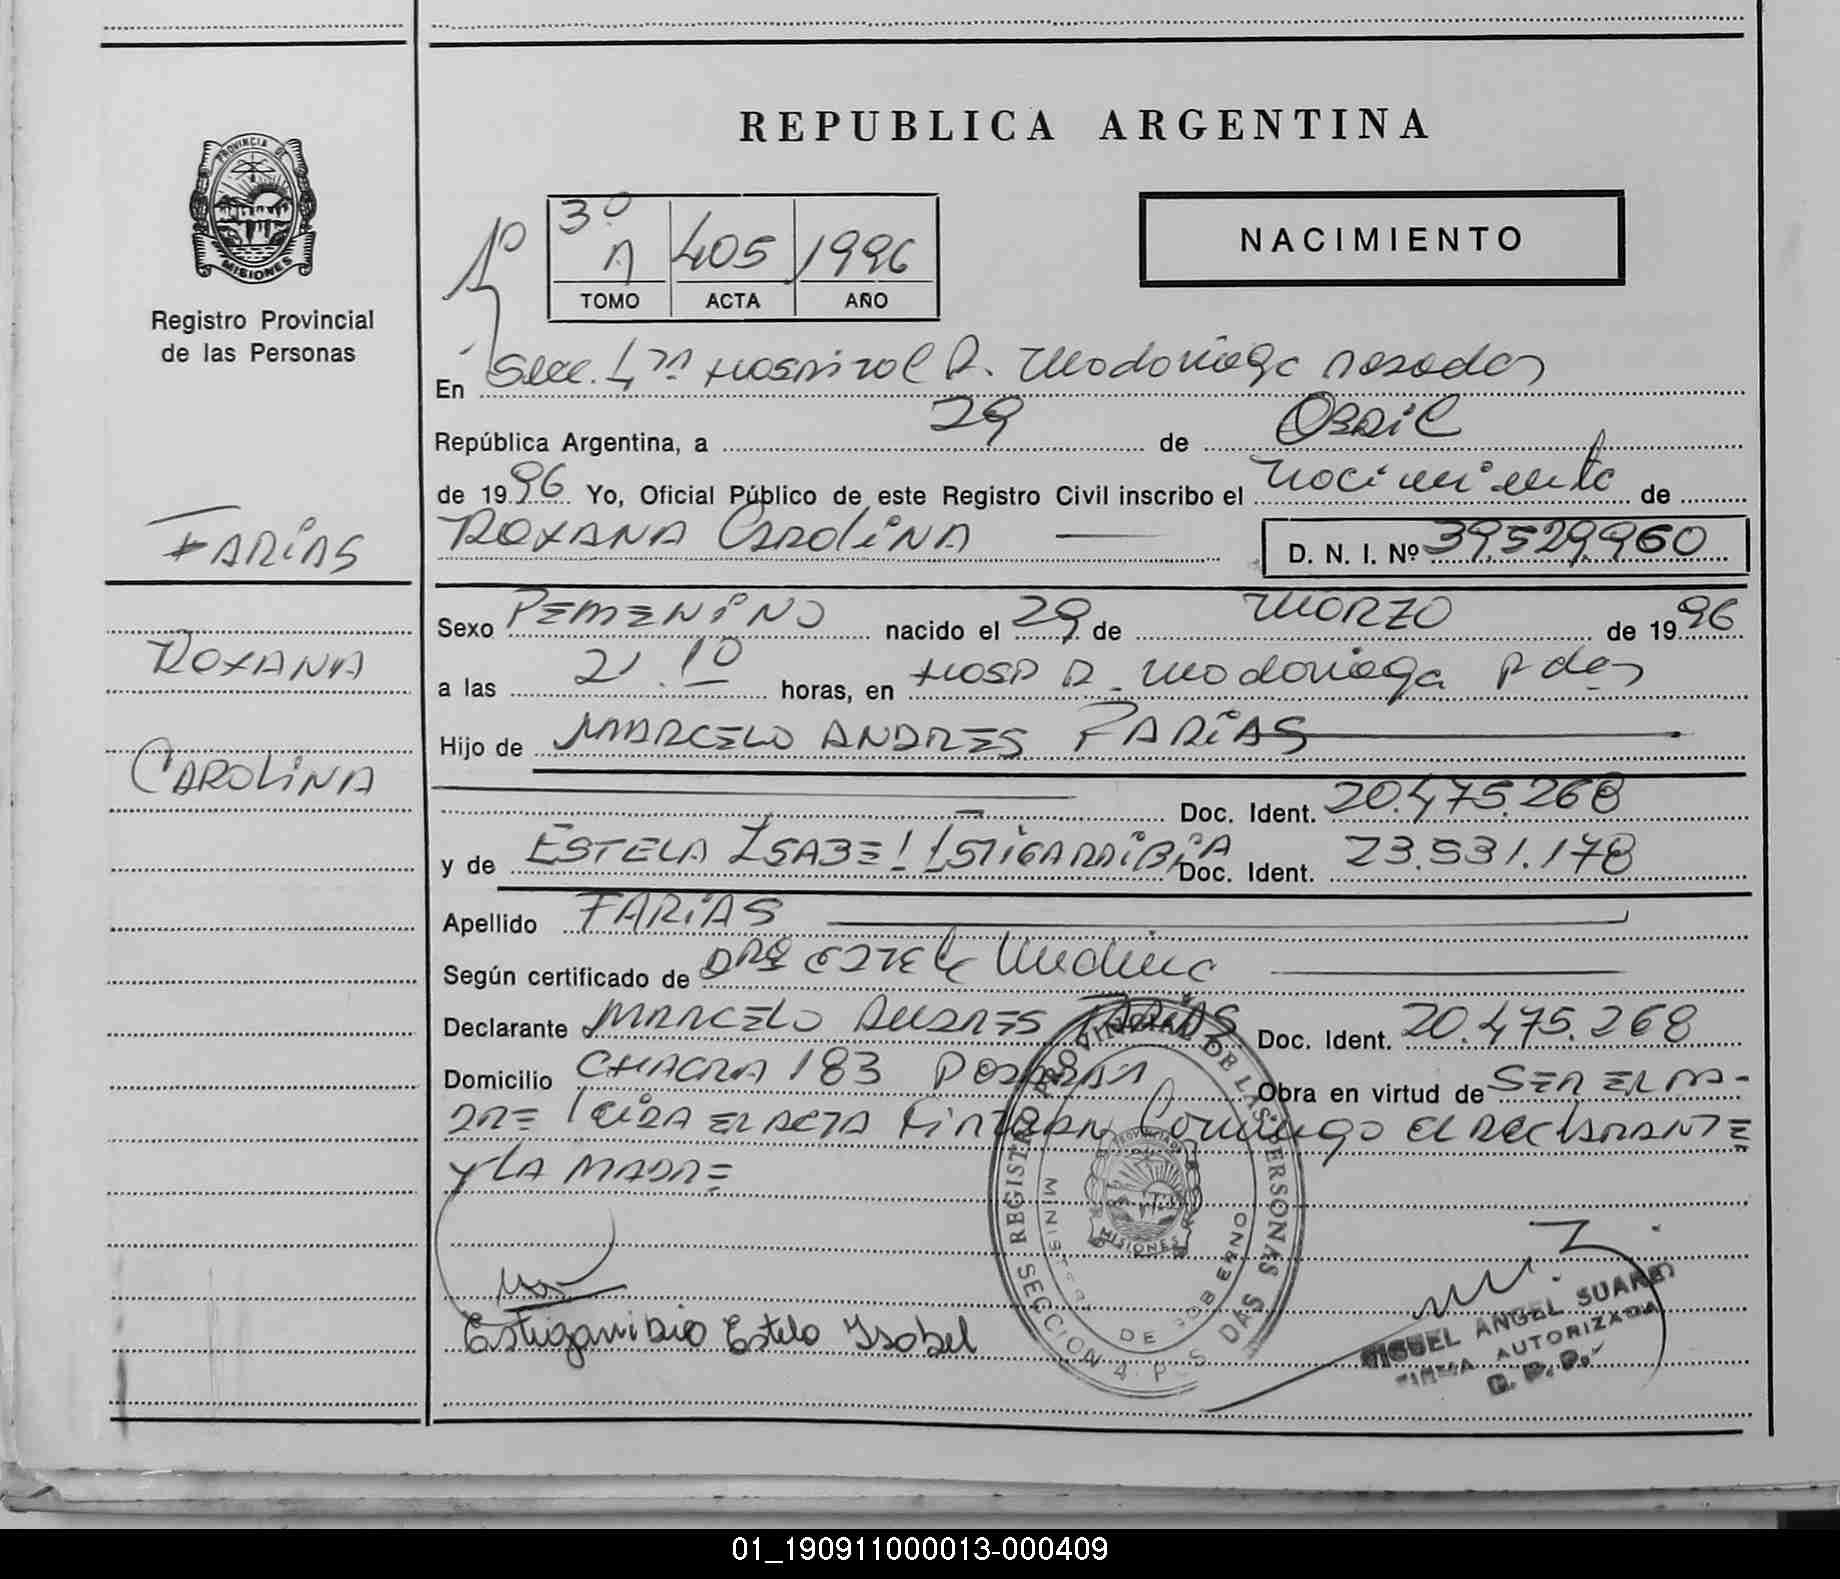 REPUBLICA ARGENTINA
PROVINCIA DE
MISIONES
Registro Provincial
de las Personas
3º A 405 1996
TOMO ACTA AÑO
NACIMIENTO
En Secc. 4ta Hospital R. Madariaga Posadas
República Argentina, a 29 de Abril
de 1996 Yo, Oficial Público de este Registro Civil inscribo el nacimiento de
FARIAS
ROXANA CAROLINA D. N. I. Nº 39.529.960
Sexo FEMENINO nacido el 29 de MARZO de 1996
ROXANA
a las 21.10 horas, en HOSP R. Madariaga Pdas
Hijo de MARCELO ANDRES FARIAS
CAROLINA
Doc. Ident. 20.475.268
y de ESTELA ISABEL ESTIGARRIBIA Doc. Ident. 23.531.178
Apellido FARIAS
Según certificado de Medina
Declarante MARCELO ANDRES FARIAS Doc. Ident. 20.475.268
Domicilio CHACRA 183 POSADAS Obra en virtud de SER EL PA-
DRE leida EL ACTA FIRMAN Conmigo El DECLARANTE
Y LA MADRE
REGISTRO PROVINCIAL DE LAS PERSONAS
MINISTERIO DE GOBERNO
PROVINCIA DE
MISIONES
SECCION 4
Estigarribia Estela Isabel
MIGUEL ANGEL SUAREZ
FIRMA AUTORIZADA
01_190911000013-000409